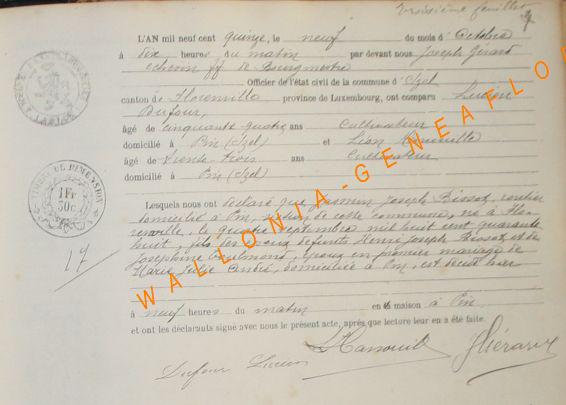 troisième feuillet
L'AN mil neuf cent quinze, le neuf du mois d'Octobre
à dix heures du matin par devant nous Joseph Gérard
échevin ff de Bourgmestre
Officier de l'état civil de la commune d'Izel
canton de Florenville province de Luxembourg, ont comparu Lucien
Dufour,
âgé de cinquante quatre ans Cultivateur
domicilié à Pin (Izel) et Léon
âgé de trois ans Cultivateur
domicilié à Pin (Izel)
TIMBRE DE DIMENSION
1 Fr
50 C
17
Lesquels nous ont déclaré que Joseph Bissot, rentier
domicilié à Pin, de cette commune, né à Flo-
renville, le quatre septembre mil huit cent quarante
huit, fils des époux défunts Henri Joseph Bissot et de
Joséphine époux en premier mariage de
Marie Julie André, domiciliée à Pin, est décédé hier
à neuf heures du matin en sa maison à Pin
et ont les déclarants signé avec nous le présent acte, après que lecture leur en a été faite.
JGérard
Dufour Lucien
WALLONIA-GENEAFLO